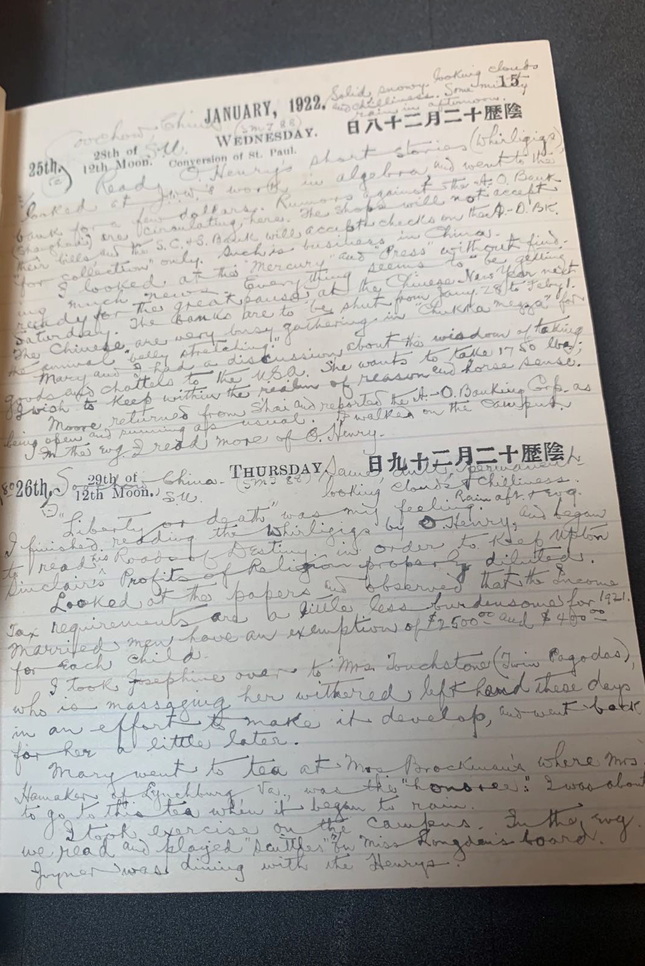 Solid, snowy looking clouds
and chilliness. Some misty
rain in afternoon.
15
JANUARY, 1922.
Soochow China
S.U.
WEDNESDAY.
陰歷十二月二十八日
25th.
28th of
12th Moon.
Conversion of St. Paul.
Read O Henry's short stories (Whirligigs),
looked at work in algebra and went to the
bank for a few dollars. Rumors against the A.O. Bank
(Shanghai) are circulating here. The shops will not accept
their bills and the S.C.&S. Bank will accept checks on the A-O. BK.
"for collection" only. Such is business in China.
I looked at the "Mercury" and "Press" without find-
ing much news. Everything seems to be getting
ready for the great pause at the Chinese New Year next
Saturday. The banks are to be shut from Jany. 28 to Feby 1.
The Chinese are very busy gathering in for
the annual "belley stretching".
Mary and I had a discussion about the wisdom of taking
goods and chattels to the U.S.A. She wants to take 1750 lbs;
I wish to keep within the realm of reason and horse sense.
Moore returned from Shai and reported the A-O. Banking Corp. as
being open and running as usual. I walked on the campus.
In the evg I read more of O. Henry.
THURSDAY
陰歷十二月二十九日
26th.
29th of
12th Moon.
China.
S.U.
Same permanent
looking clouds & chilliness.
Rain aft. & evg.
"Liberty or death" was my feeling.
I finished reading the Whirligigs by O Henry, and began
to read his Roads of Destiny in order to keep Upton
Sinclair's Profits of Religion properly diluted.
Looked at the papers and observed that the Income
Tax requirements are a little less burdensome for 1921.
Married men have an exemption of $2500.00 and $400.00
for each child.
I took Josephine over to Mrs Touchstone (Twin Pagodas),
who is massaging her withered left hand these days
in an effort to make it develop, and went back
for her a little later.
Mary went to tea at Mrs Brockman's where Mrs
Hamaker of Lynchburg Va., was the "honoree". I was about
to go to this tea when it began to rain.
I took exercise on the campus. In the evg.
we read and played "scuttles" on Miss Longden's board.
Joyner was dining with the Henrys.